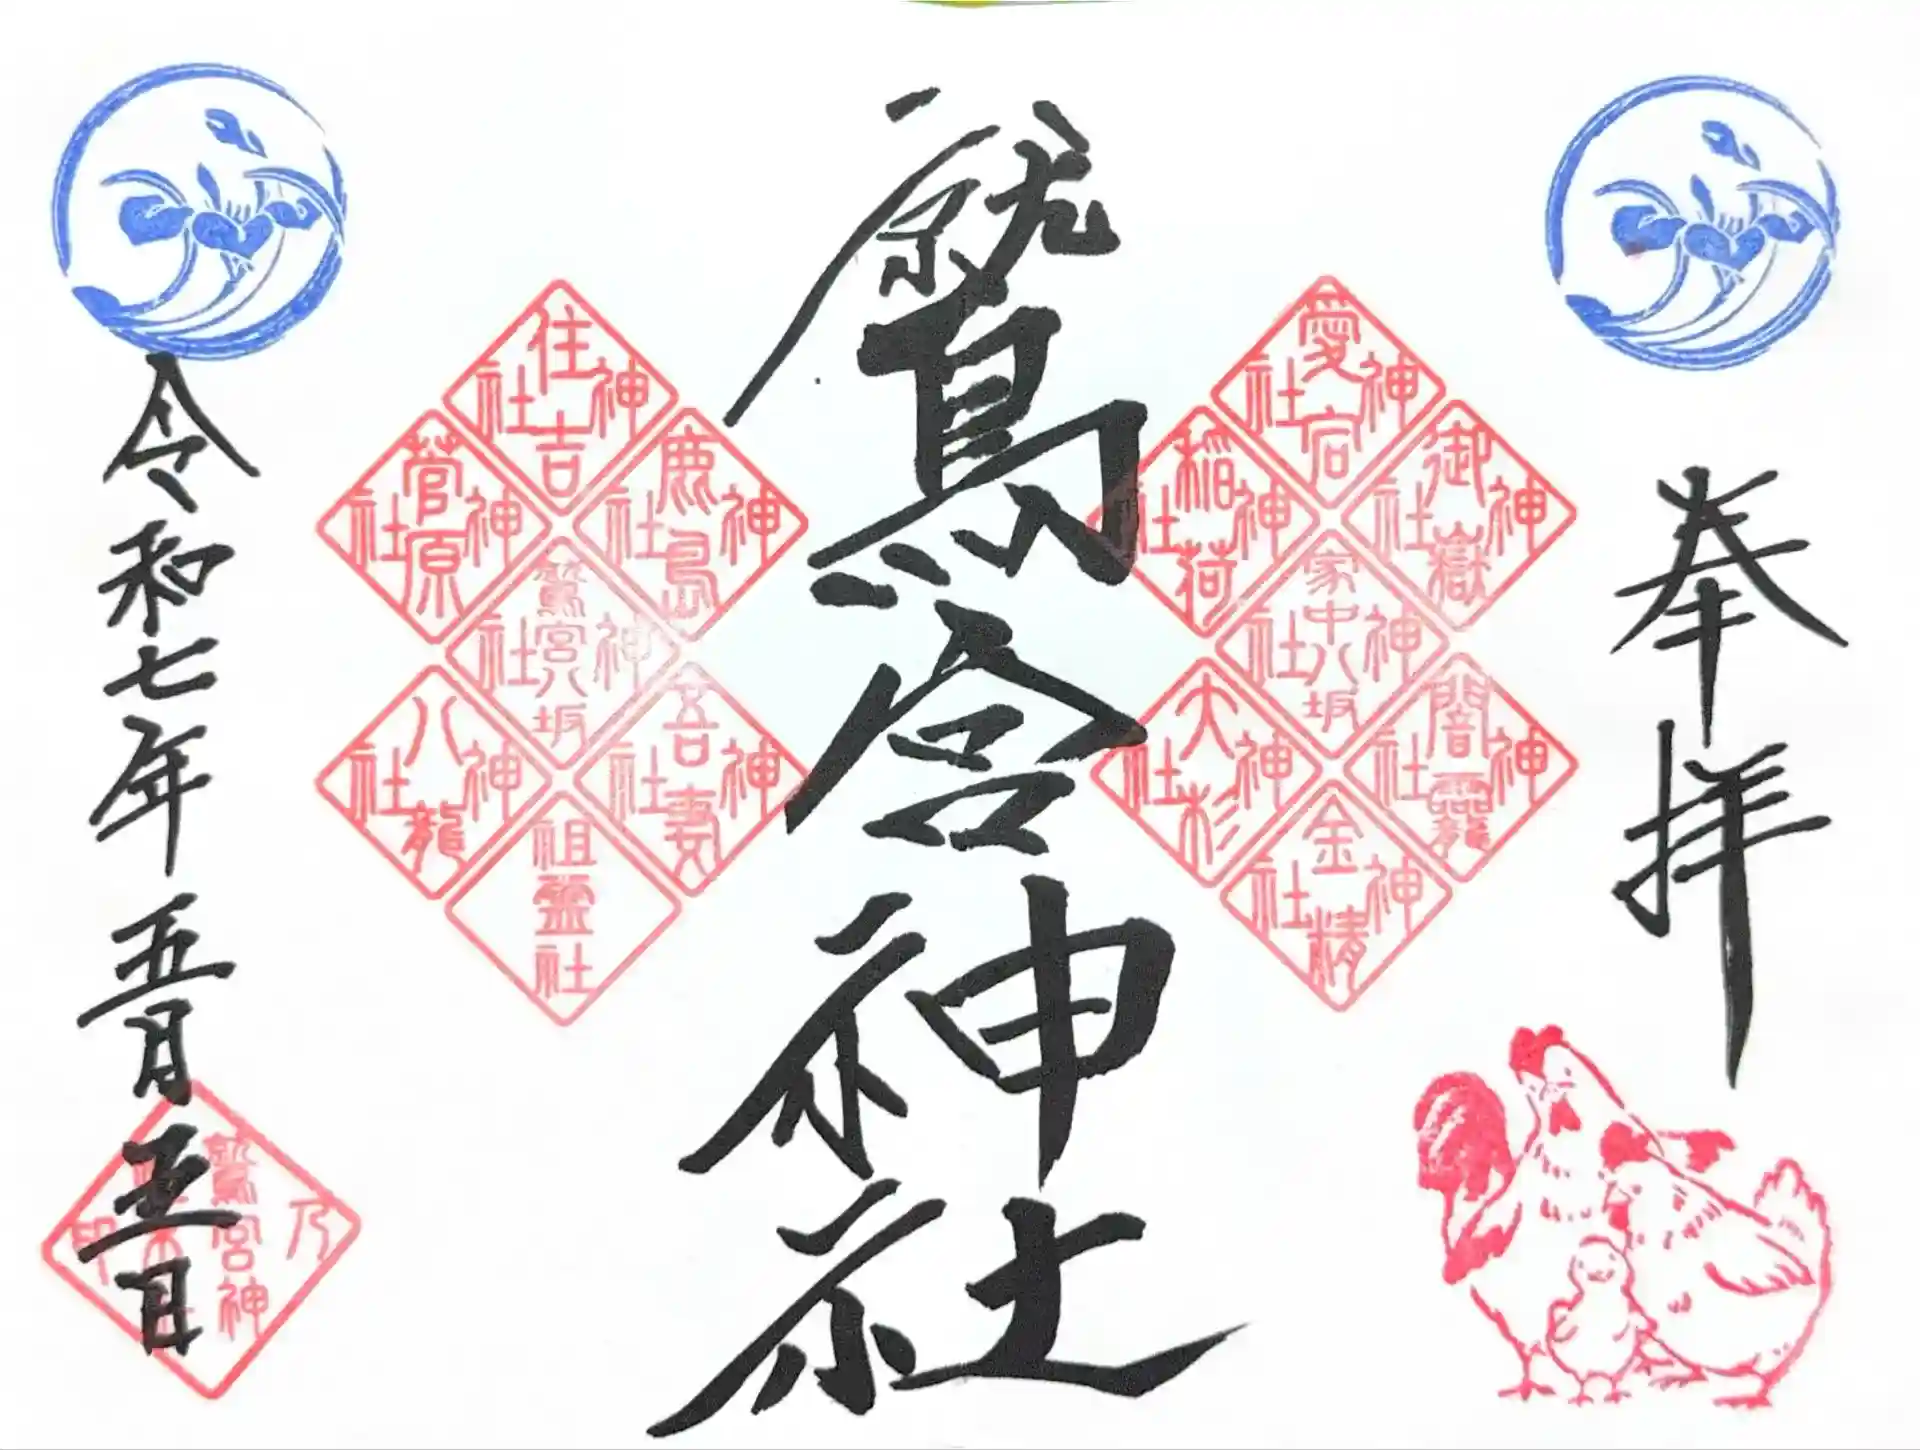 奉拝
愛宕神社
御嶽神社
稲荷神社
家中八坂神社
闇龗神社
大杉神社
金精神社
鷲宮神社
住吉神社
鹿島神社
菅原神社
鷲宮八坂神社
吾妻神社
八龍神社
祖霊社
令和七年五月五日
鷲宮神
乃
印